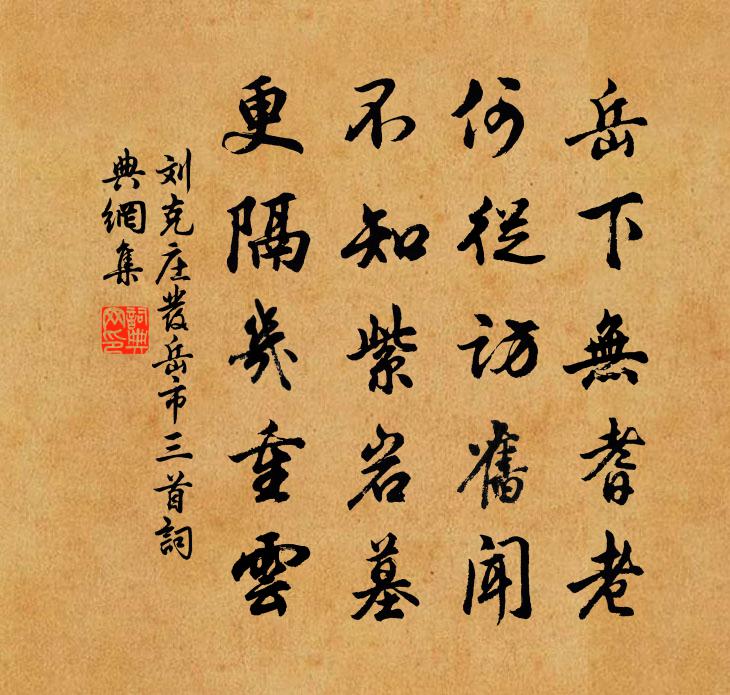 岳下無耆老
何從訪舊聞
不知紫岩墓
更隔幾重雲
刘克庄發岳市三首詞
典網集
詞典網印